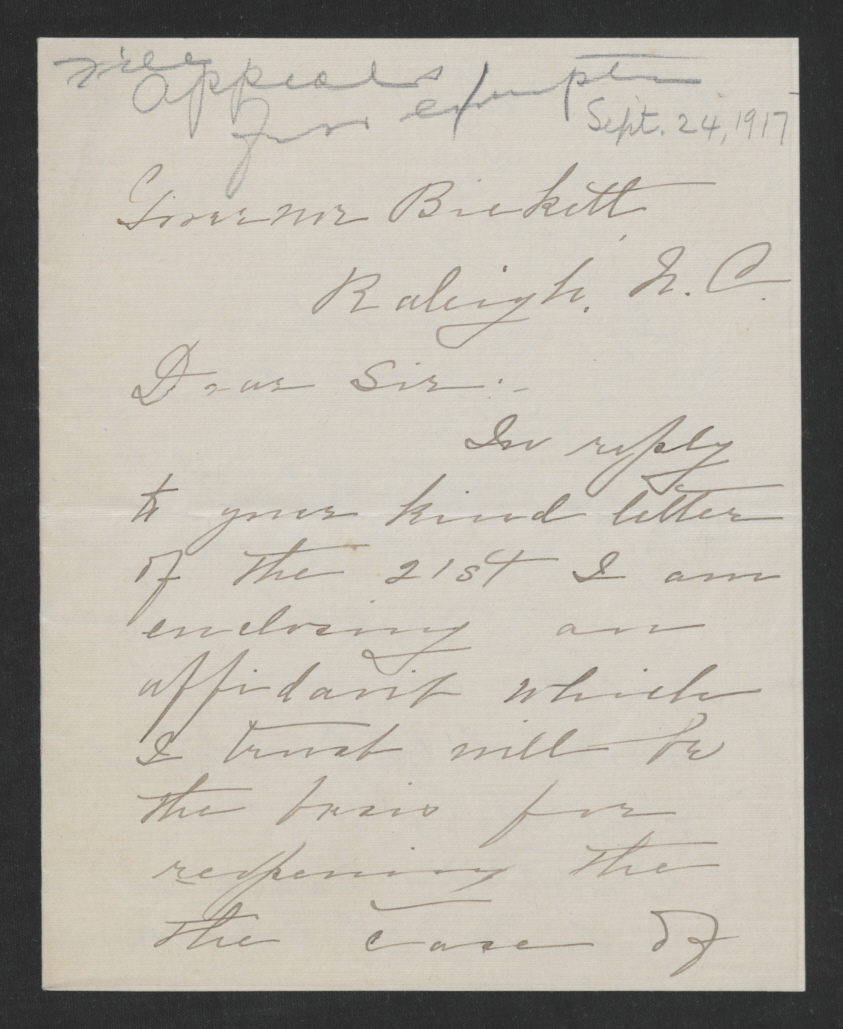 File
Appeals
for exemption
Sept. 24, 1917
Governor Bickett
Raleigh, N. C.
Dear Sir:-
In reply
to your kind letter
of the 21st I am
enclosing an
affidavit which
I trust will be
the basis for
reopening the
the case of